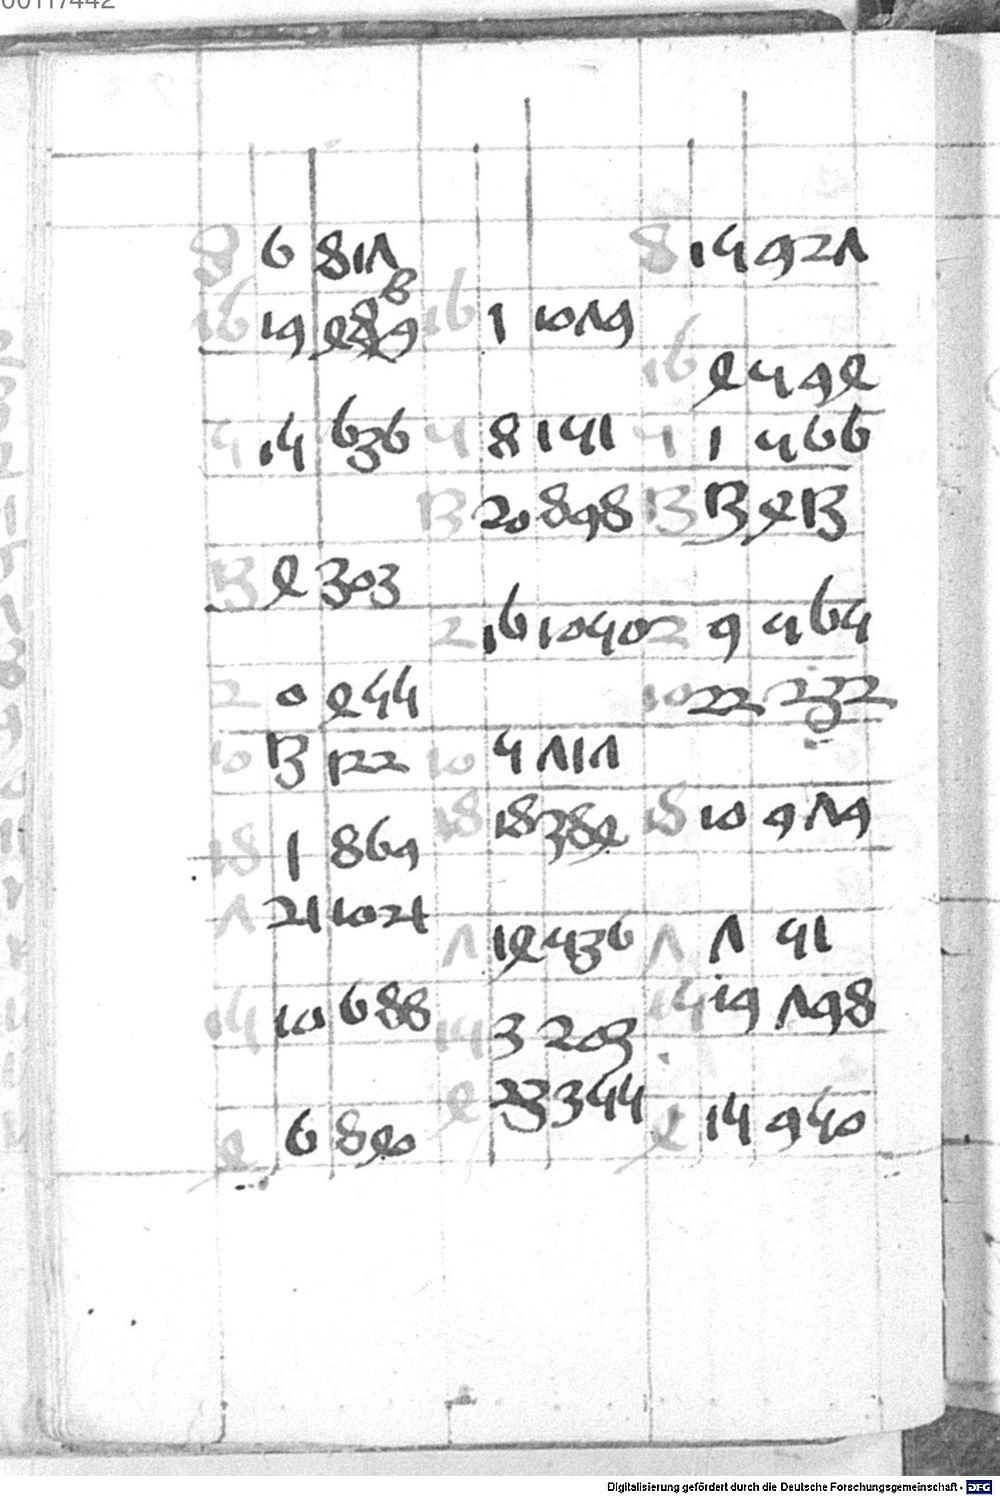 00117442
8 6 817 8 14 927
8
16 19 589 16 1 1079
16 5 495
4 14 636 4 8 141 4 1 466
13 20 898 13 13 513
13 5 303
2 16 1040 2 9 464
2 0 544 10 22 232
10 13 122 10 4 717
18 1 869 18 18 385 18 10 979
7 21 1021 7 15 436 7 7 41
14 10 688 14 3 203 14 19 798
5 6 850 5 23 344 5 14 940
Digitalisierung gefördert durch die Deutsche Forschungsgemeinschaft - DFG